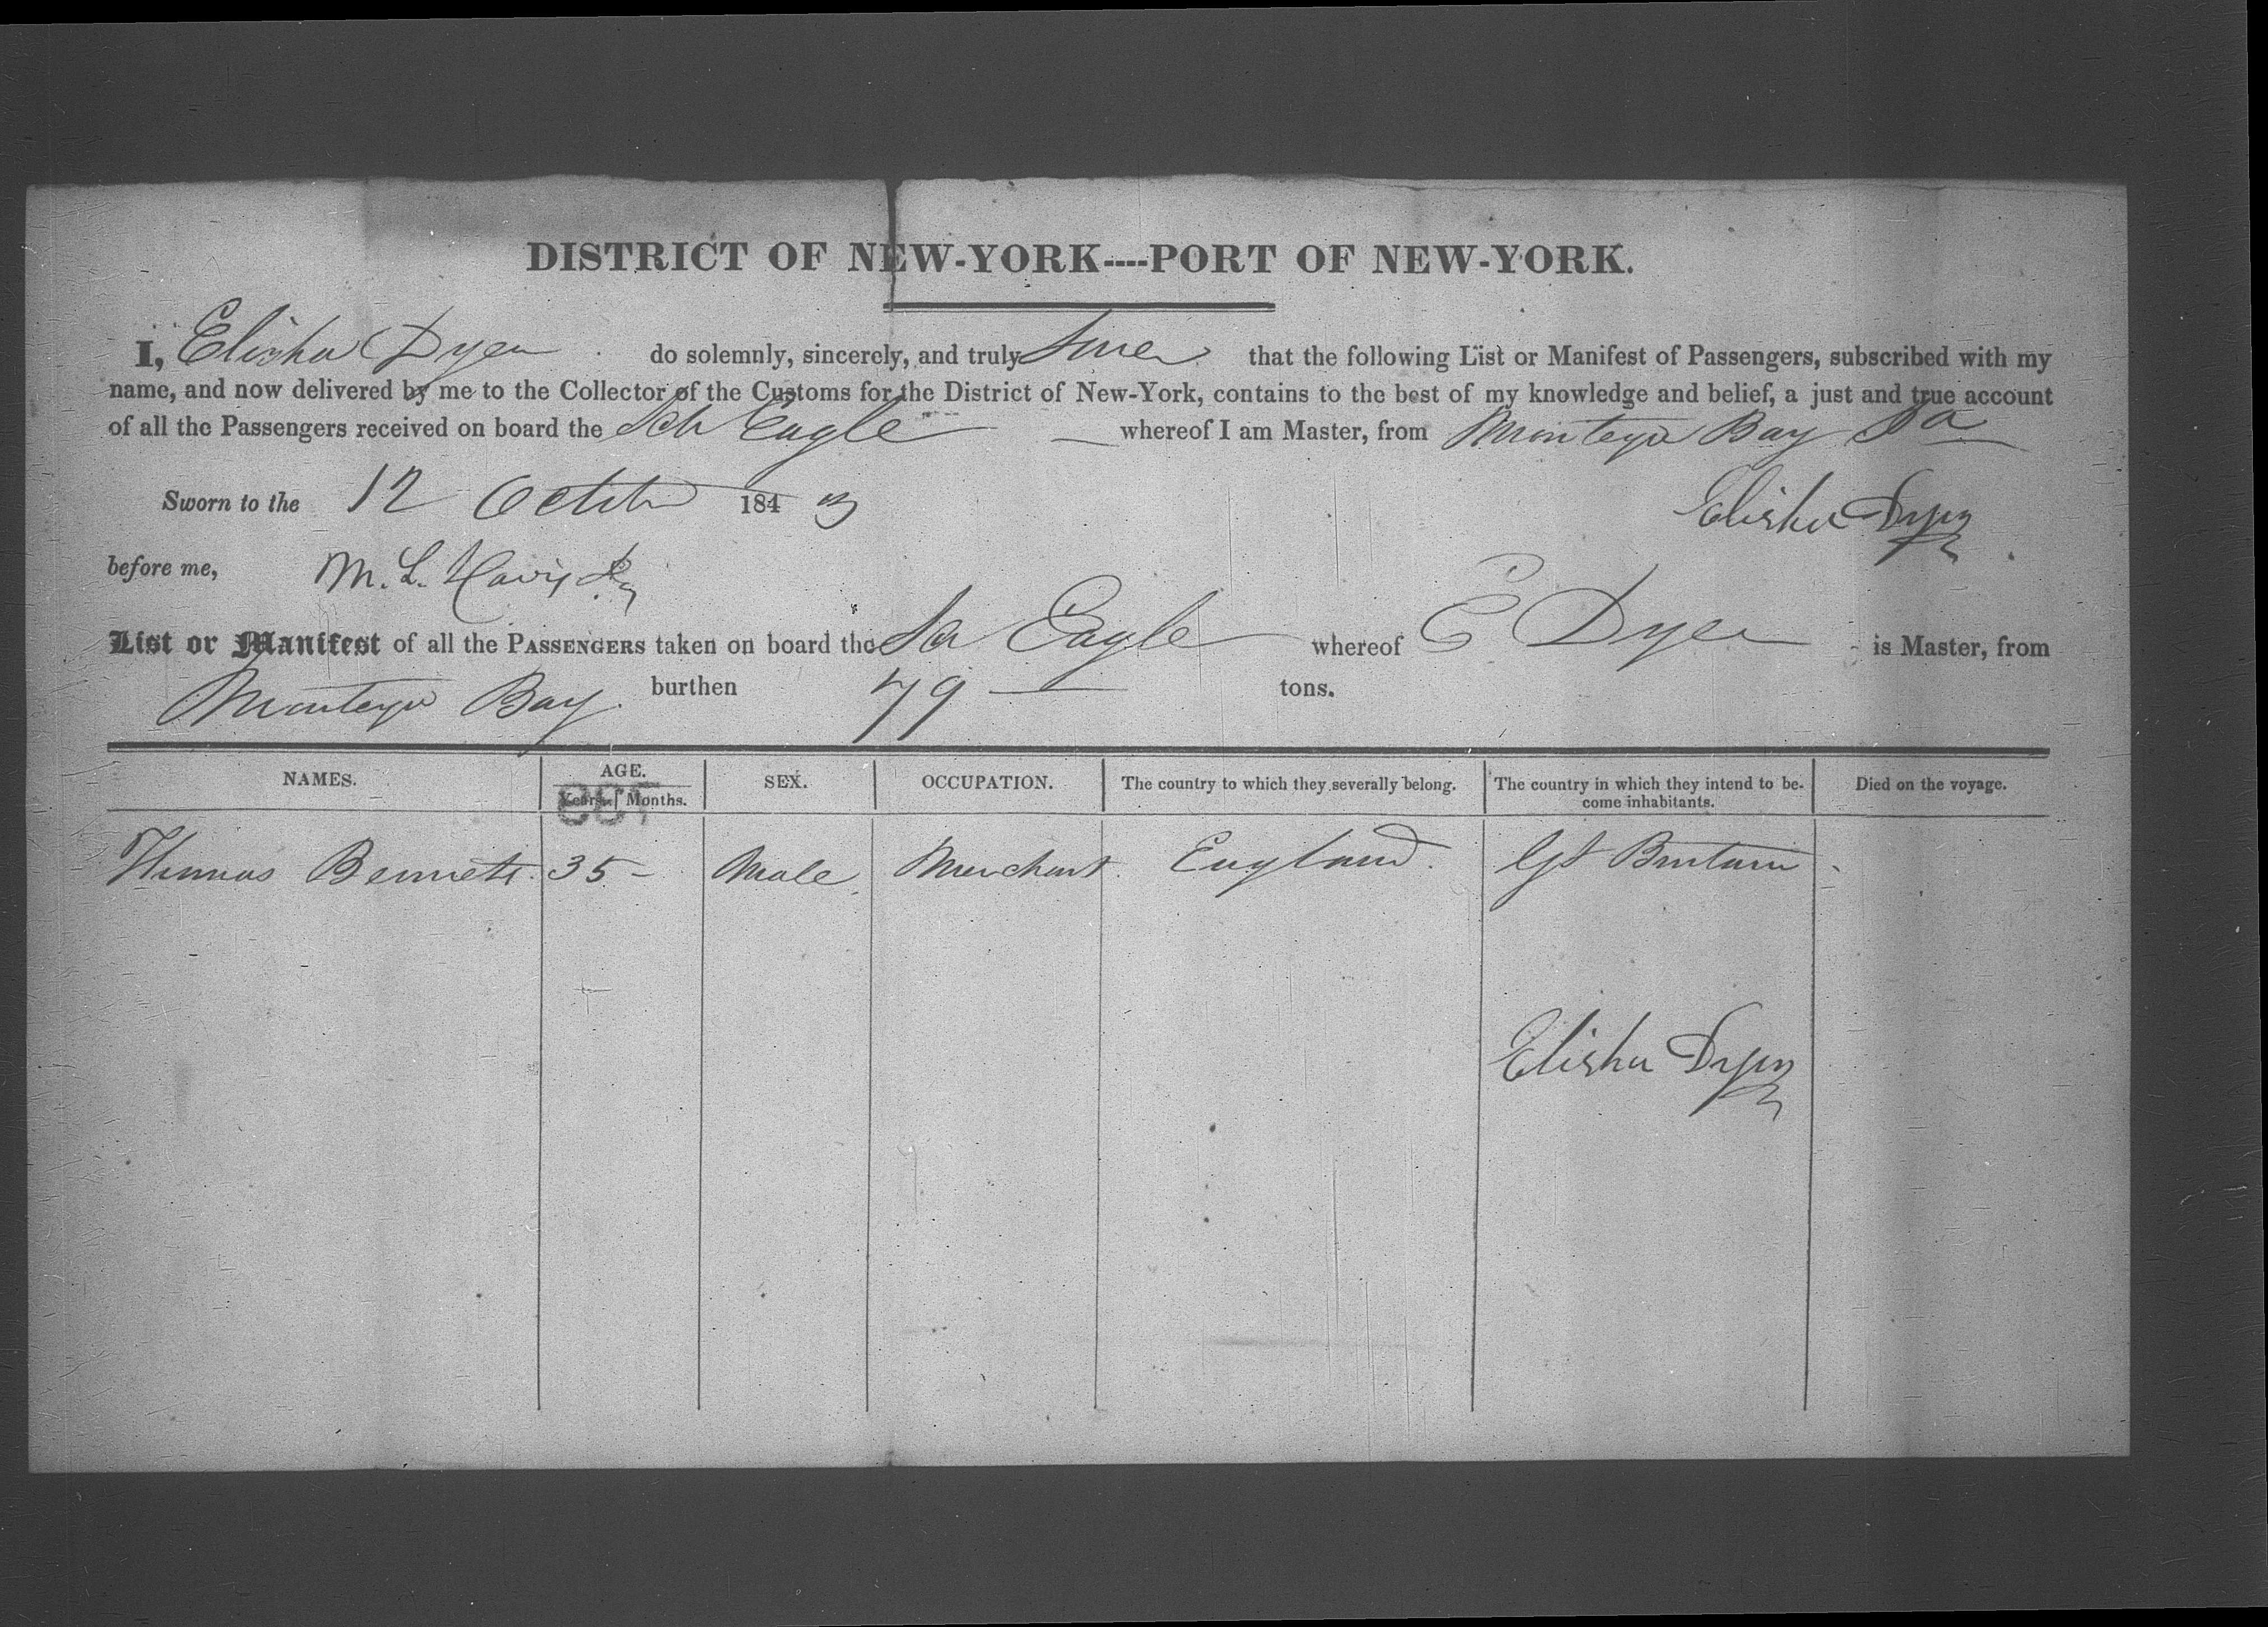 DISTRICT OF NEW-YORK----PORT OF NEW-YORK.
I, Elisha Dyer do solemnly, sincerely, and truly that the following List or Manifest of Passengers, subscribed with my
name, and now delivered by me to the Collector of the Customs for the District of New-York, contains to the best of my knowledge and belief, a just and true account
of all the Passengers received on board the Sch Eagle whereof I am Master, from Montego Bay Ja
Sworn to the 12 October 1843 Elisha Dyer
before me, M. L. Davis
List or Manifest of all the PASSENGERS taken on board the Eagle whereof E Dyer is Master, from
Montego Bay burthen 79 tons.
NAMES. AGE. SEX. OCCUPATION. The country to which they severally belong. The country in which they intend to be- Died on the voyage.
Years. Months. come inhabitants.
Thomas Bennett 35 - Male Merchant England Gt Britain -
Elisha Dyer